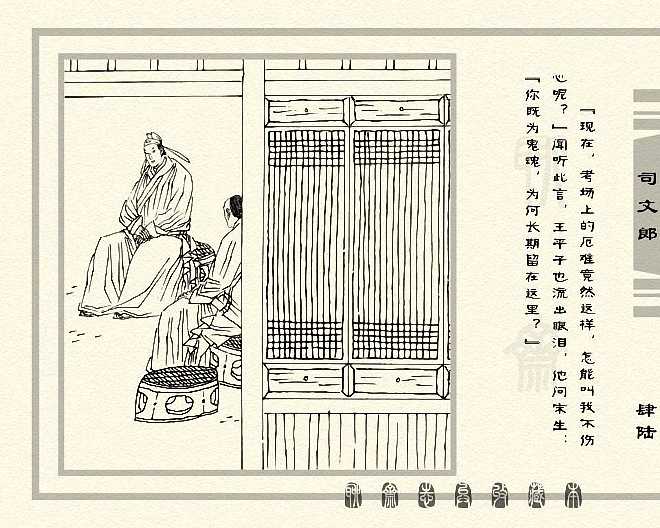 司文郎
『现在，考场上的厄难竟然这样，怎能叫我不伤
心呢？』闻听此言，王平子也流出眼泪，他问宋生：
『你既为鬼魂，为何长期留在这里？』
肆陆
聊斋志异收藏本